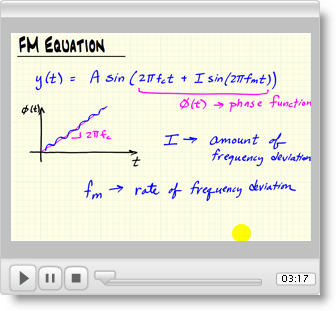 FM EQUATION
y(t) = A sin(2πf_c t + I sin(2πf_m t))
ϕ(t) → phase function
ϕ(t)
2πf_c
t
I → amount of
frequency deviation
f_m → rate of frequency deviation
03:17